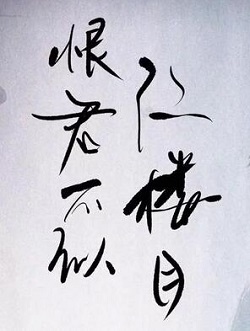 恨君不似
江楼月